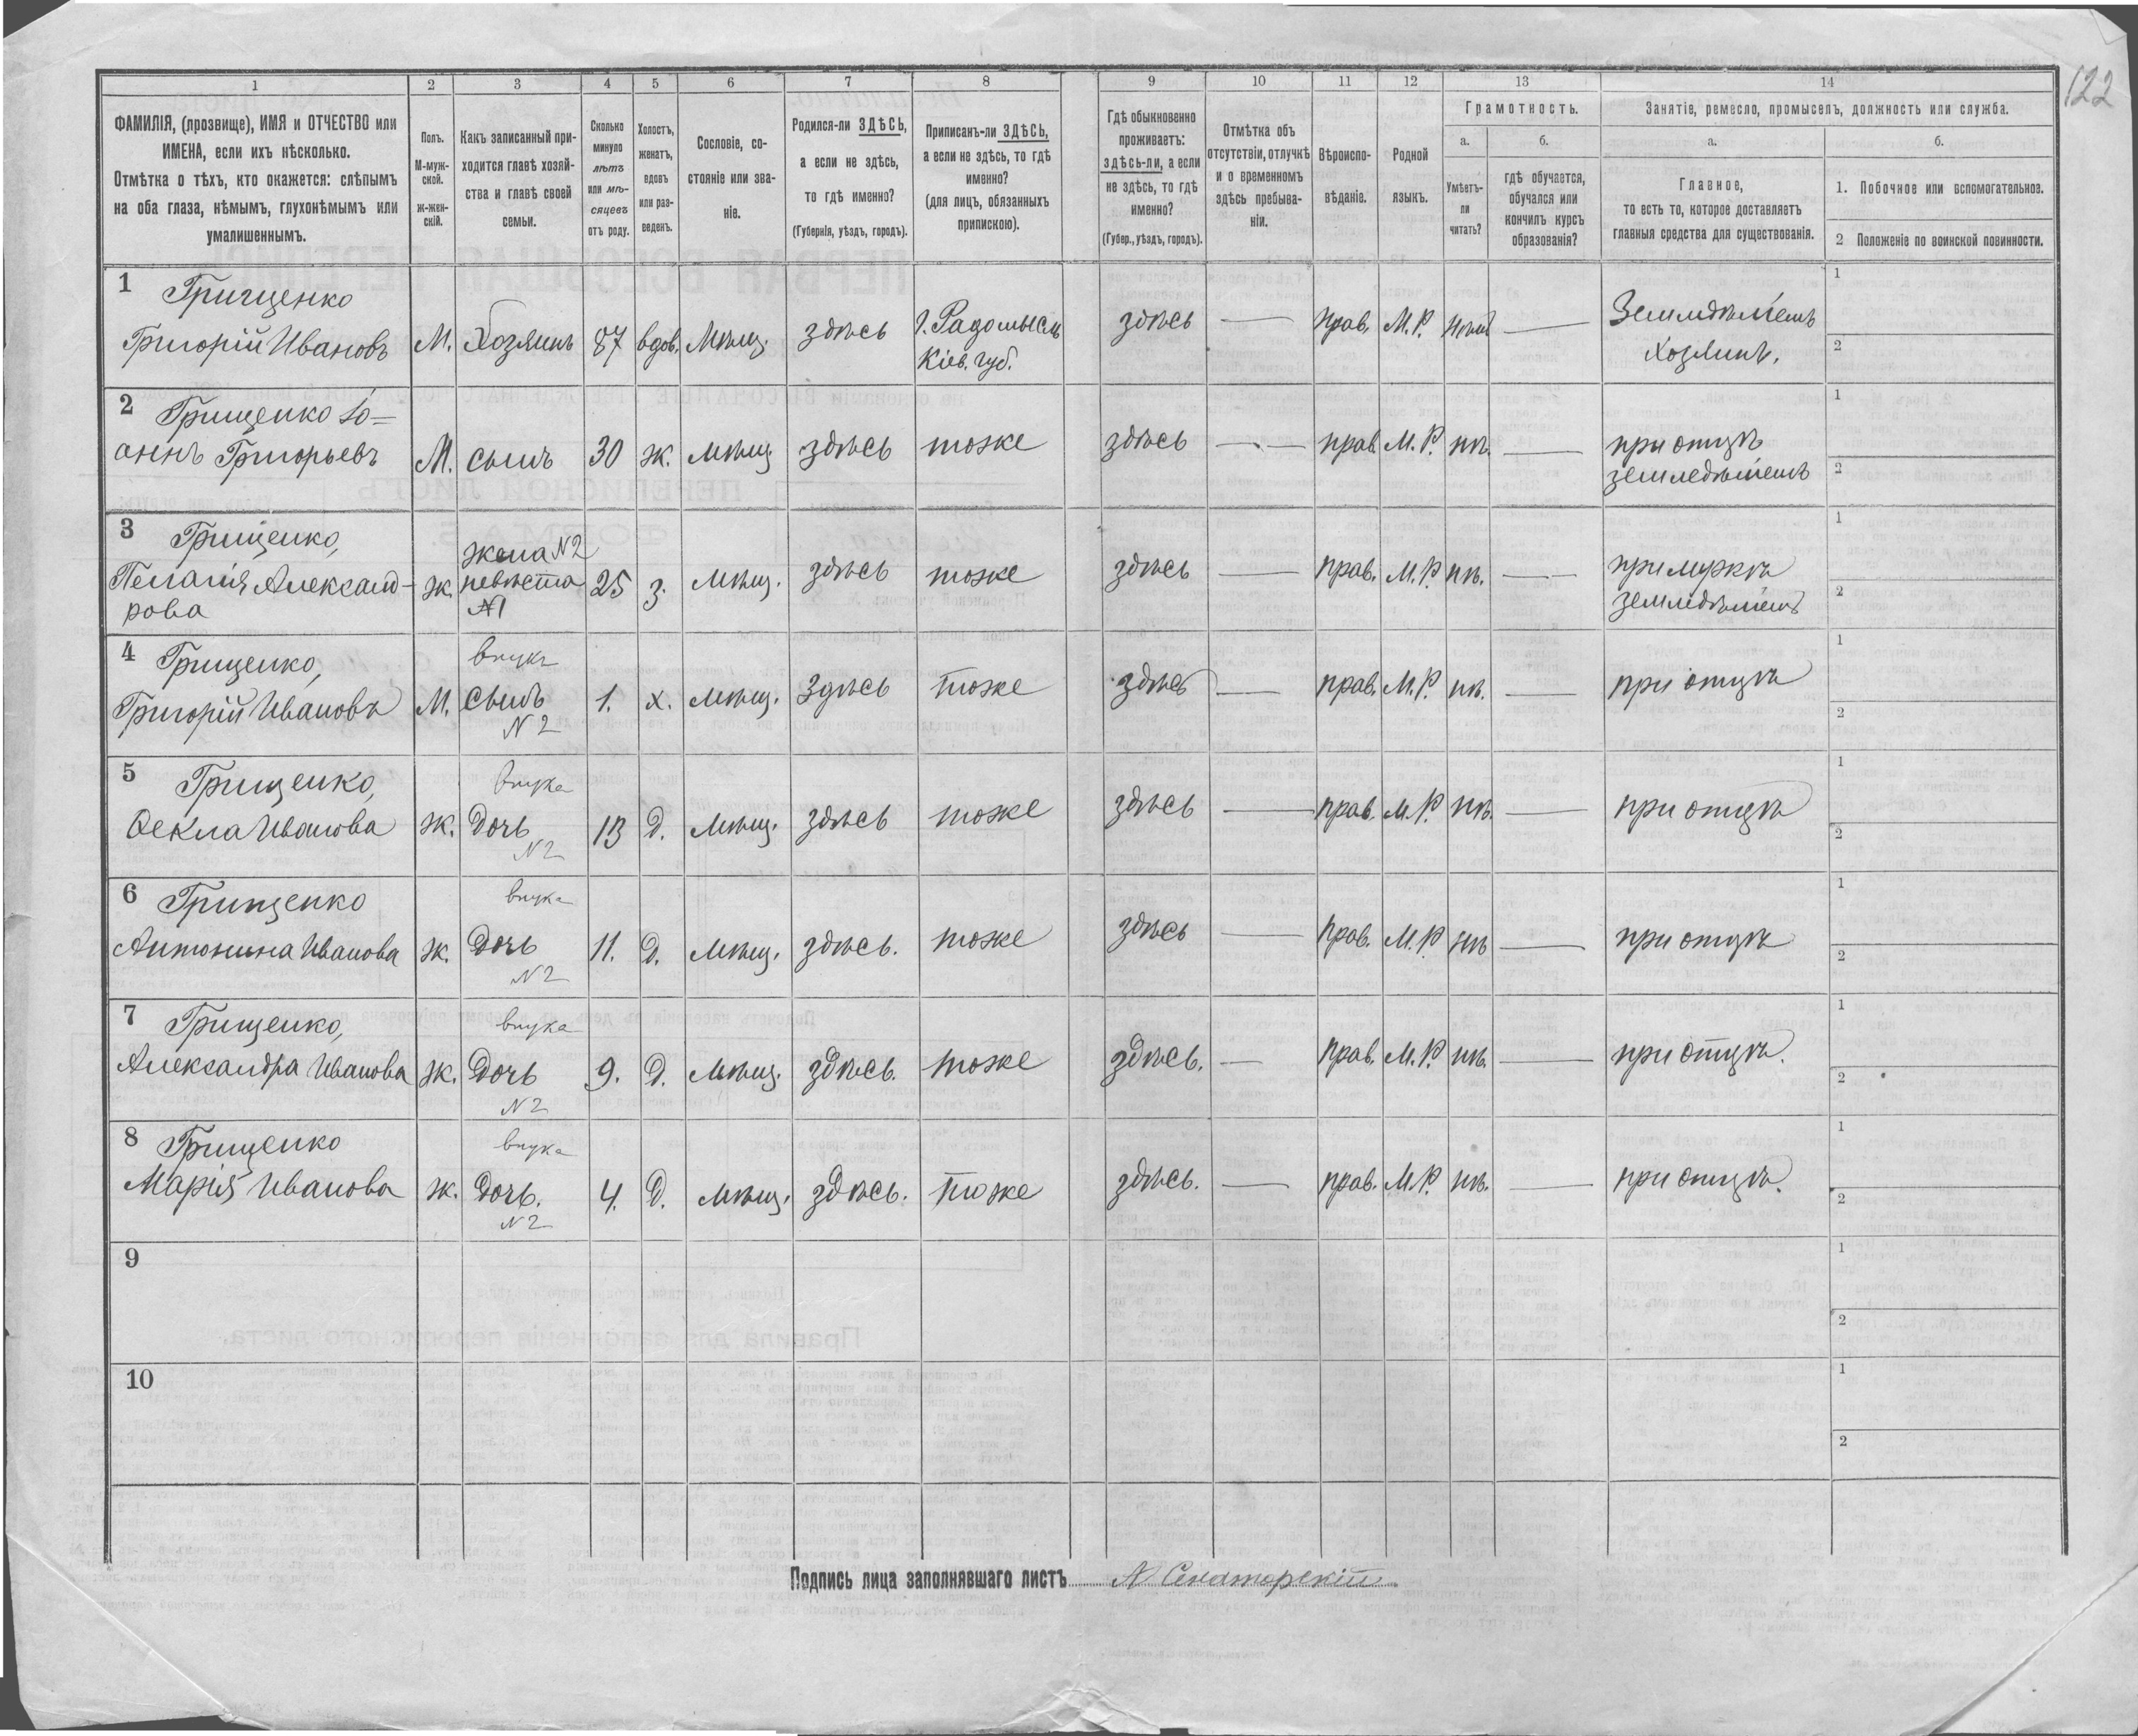 122
1 2 3 4 5 6 7 8 9 10 11 12 13 14
ФАМИЛІЯ, (прозвище), ИМЯ и ОТЧЕСТВО или
ИМЕНА, если ихъ нѣсколько.
Отмѣтка о тѣхъ, кто окажется: слѣпымъ
на оба глаза, нѣмымъ, глухонѣмымъ или
умалишеннымъ.
Полъ.
М-муж-
ской.
ж-жен-
скій.
Какъ записанный при-
ходится главѣ хозяй-
ства и главѣ своей
семьи.
Сколько
минуло
лѣтъ
или мѣ-
сяцевъ
отъ роду.
Холостъ,
женатъ,
вдовъ
или раз-
веденъ.
Сословіе, со-
стояніе или зва-
ніе.
Родился-ли ЗДѢСЬ,
а если не здѣсь,
то гдѣ именно?
(Губернія, уѣздъ, городъ).
Приписанъ-ли ЗДѢСЬ,
а если не здѣсь, то гдѣ
именно?
(для лицъ, обязанныхъ
припискою).
Гдѣ обыкновенно
проживаетъ:
здѣсь-ли, а если
не здѣсь, то гдѣ
именно?
(Губер., уѣздъ, городъ).
Отмѣтка объ
отсутствіи, отлучкѣ
и о временномъ
здѣсь пребыва-
ніи.
Вѣроиспо-
вѣданіе.
Родной
языкъ.
Грамотность.
а. б.
Умѣетъ-
ли
читать?
гдѣ обучается,
обучался или
кончилъ курсъ
образованія?
Занятіе, ремесло, промыселъ, должность или служба.
а. б.
Главное,
то есть то, которое доставляетъ
главныя средства для существованія.
1. Побочное или вспомогательное.
2 Положеніе по воинской повинности.
1 Грищенко
Григорій Ивановъ М. Хозяинъ 87 вдов. Мѣщ. здѣсь г. Радомысль
Кіев. губ.
здѣсь — прав. М. Р. нѣтъ — Земледѣлецъ
Хозяинъ.
1
2
2 Грищенко Іо=
аннъ Григорьевъ М. сынъ 30 ж. мѣщ. здѣсь тоже здѣсь — прав. М. Р. нѣ. — при отцѣ
земледѣлецъ
1
2
3 Грищенко,
Пелагія Александ-
рова
ж. жена N2
невѣста
N1
25 з. мѣщ. здѣсь тоже здѣсь — прав. М. Р. нѣ. — при мужѣ
земледѣлецъ
1
2
4 Грищенко,
Григорій Ивановъ М. внукъ
сынъ
N2
1. х. мѣщ. здѣсь тоже здѣсь — прав. М. Р. нѣ. — при отцѣ
1
2
5 Грищенко,
Ѳекла Иванова ж. внука
Дочь
N2
13 д. мѣщ. здѣсь тоже здѣсь — прав. М. Р. нѣ. — при отцѣ
1
2
6 Грищенко
Антонина Иванова ж. внука
Дочь
N2
11. д. мѣщ. здѣсь. тоже здѣсь — прав. М. Р. нѣ — при отцѣ
1
2
7 Грищенко,
Александра Иванова ж. внука
Дочь
N2
9. д. мѣщ. здѣсь. тоже здѣсь. — прав. М. Р. нѣ. — при отцѣ.
1
2
8 Грищенко
Марія Иванова ж. внука
Дочь.
N2
4. д. мѣщ. здѣсь. тоже здѣсь. — прав. М. Р. нѣ. — при отцѣ.
1
2
9
1
2
10
1
2
Подпись лица заполнявшаго листъ А Сенаторскій